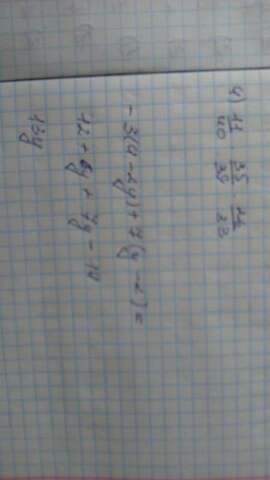 4) 11/40 35/39 22/23
- 3(4 - 2y) + 7(y - 2) =
12 + 6y + 7y - 14
13y